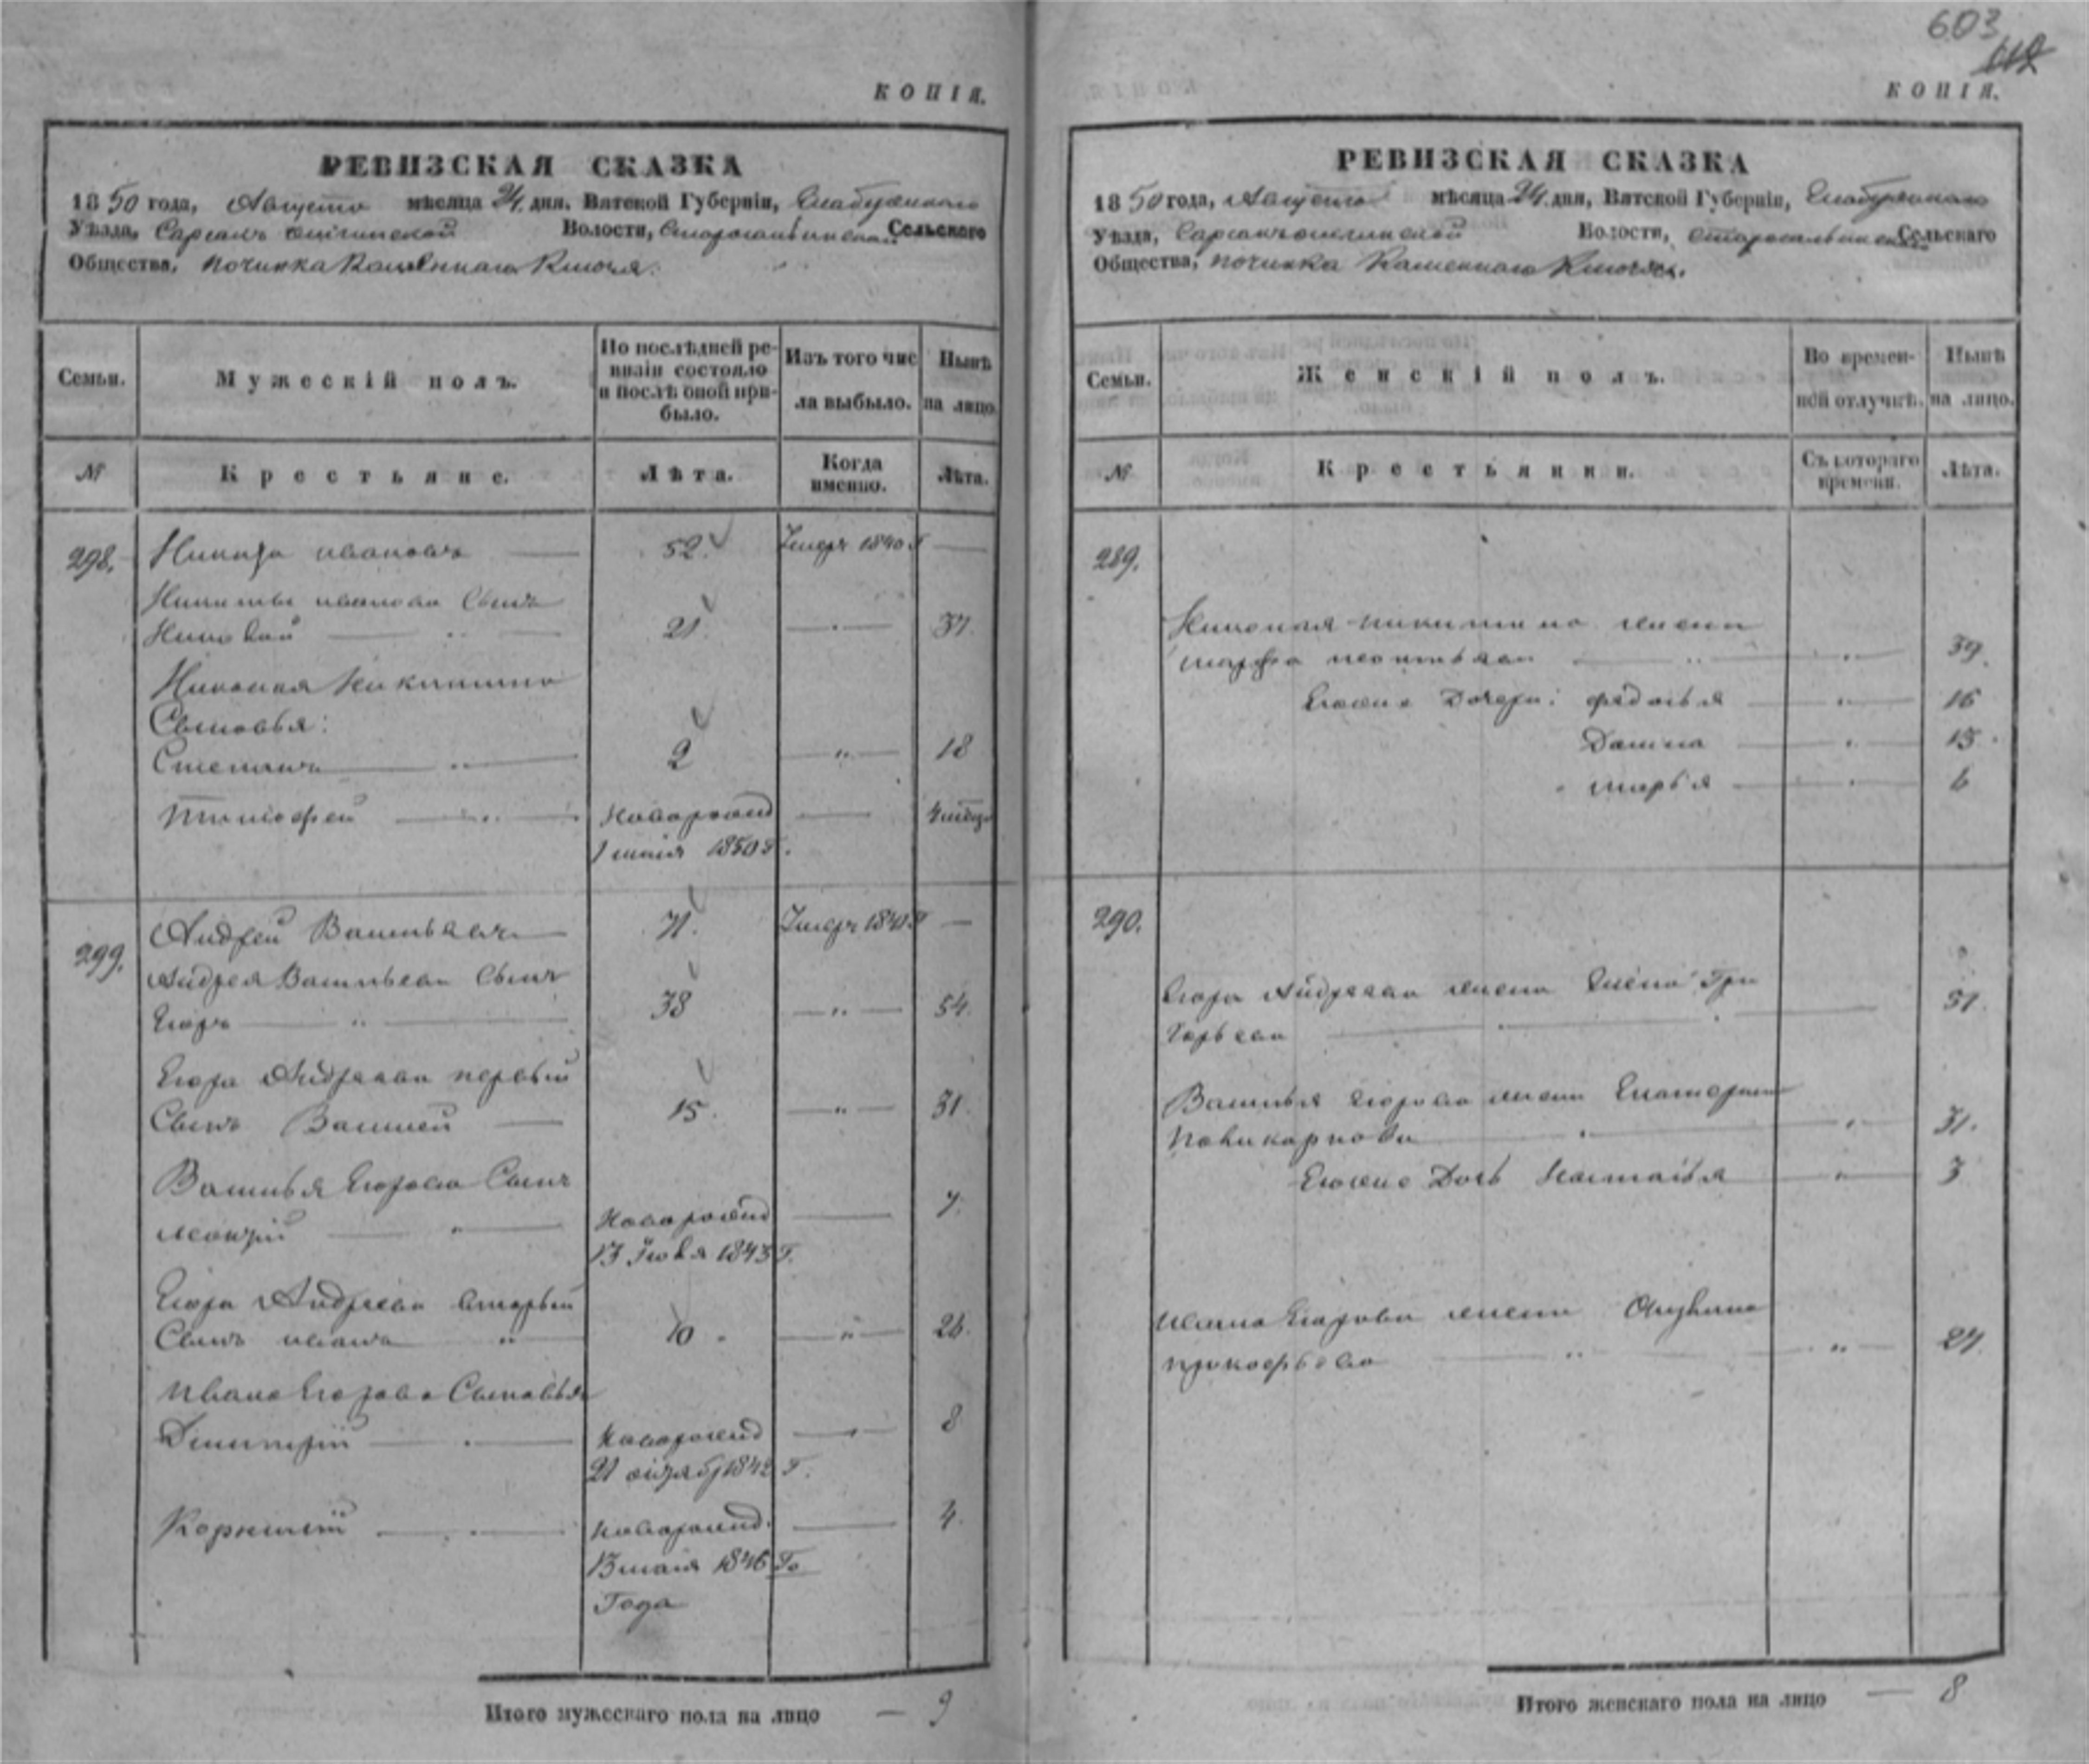 603
112
КОПІЯ.
РЕВИЗСКАЯ СКАЗКА
1850 года, Августа мѣсяца 24 дня, Вятской Губерніи, Елабужскаго
Уѣзда, Волости, Сельскаго
Общества, починка Каменнаго Ключа.
Семьи.
Мужескій полъ.
По послѣдней ре-
визіи состояло
и послѣ оной при-
было.
Изъ того чис
ла выбыло.
Нынѣ
на лицо.
№
Крестьяне.
Лѣта.
Когда
именно.
Лѣта.
298. Никита Ивановъ — 52. Умеръ 1840 г —
Никиты Иванова Сынъ
Николай — " — 21. — " — 37.
Николая Никитина
Сыновья:
Степанъ — " — 2 — " — 18
Тимофей — " — Новорожд — 4 мѣсяц
1850 г.
299. Андрей Васильевъ — 71. Умеръ —
Андрея Васильева Сынъ
Егоръ — " — 38 — " — 54.
Егора Андреева первый
Сынъ Василей — 15. — " — 31.
Василья Егорова Сынъ
— " — Новорожд — 7.
13 1843 г.
Егора Андреева вторый
Сынъ Иванъ " 10. — " — 26.
Ивана Егорова Сыновья
Димитрій — " — Новорожд — " — 8
21 октябр 1842 г.
Корнилій — " — Новорожд. — 4.
13 1846 Го
Года
Итого мужескаго пола на лицо — 9
КОПІЯ.
РЕВИЗСКАЯ СКАЗКА
1850 года, Августа мѣсяца 24 дня, Вятской Губерніи, Елабужскаго
Уѣзда, Волости, Сельскаго
Общества, починка Каменнаго Ключа.
Семьи.
Женскій полъ.
Во времен-
ной отлучкѣ.
Нынѣ
на лицо.
№
Крестьянки.
Съ котораго
времени.
Лѣта.
289.
Николая Никитина жена
Марфа — " — " — 39.
Егоже Дочери: Федосья — " — 16
Домна — " — 15.
Марья — " — 6
290.
Егора Андреева жена Елена Гри
горьева — " — 51.
Василья Егорова жена Екатерина
Поликарпова — " — " — 31.
Егоже Дочь Настасья — " — 3
Ивана Егорова жена Акулина
Прокофьева — " — " — 27.
Итого женскаго пола на лицо — 8